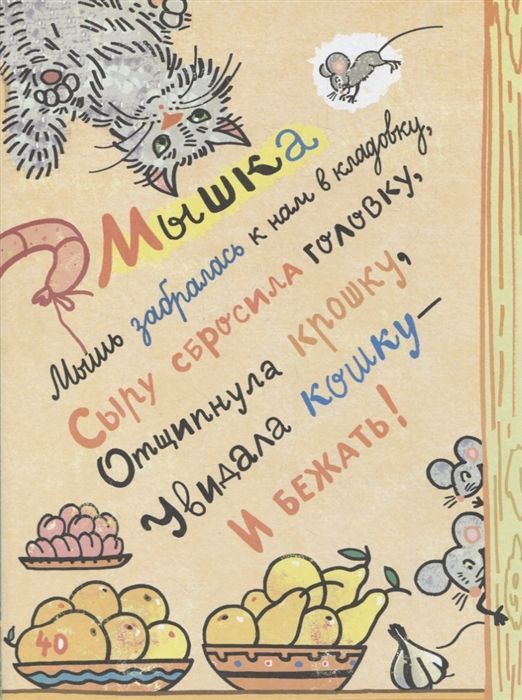 Мышка
Мышь забралась к нам в кладовку,
Сыру сбросила головку,
Отщипнула крошку,
Увидала кошку –
И бежать!
40